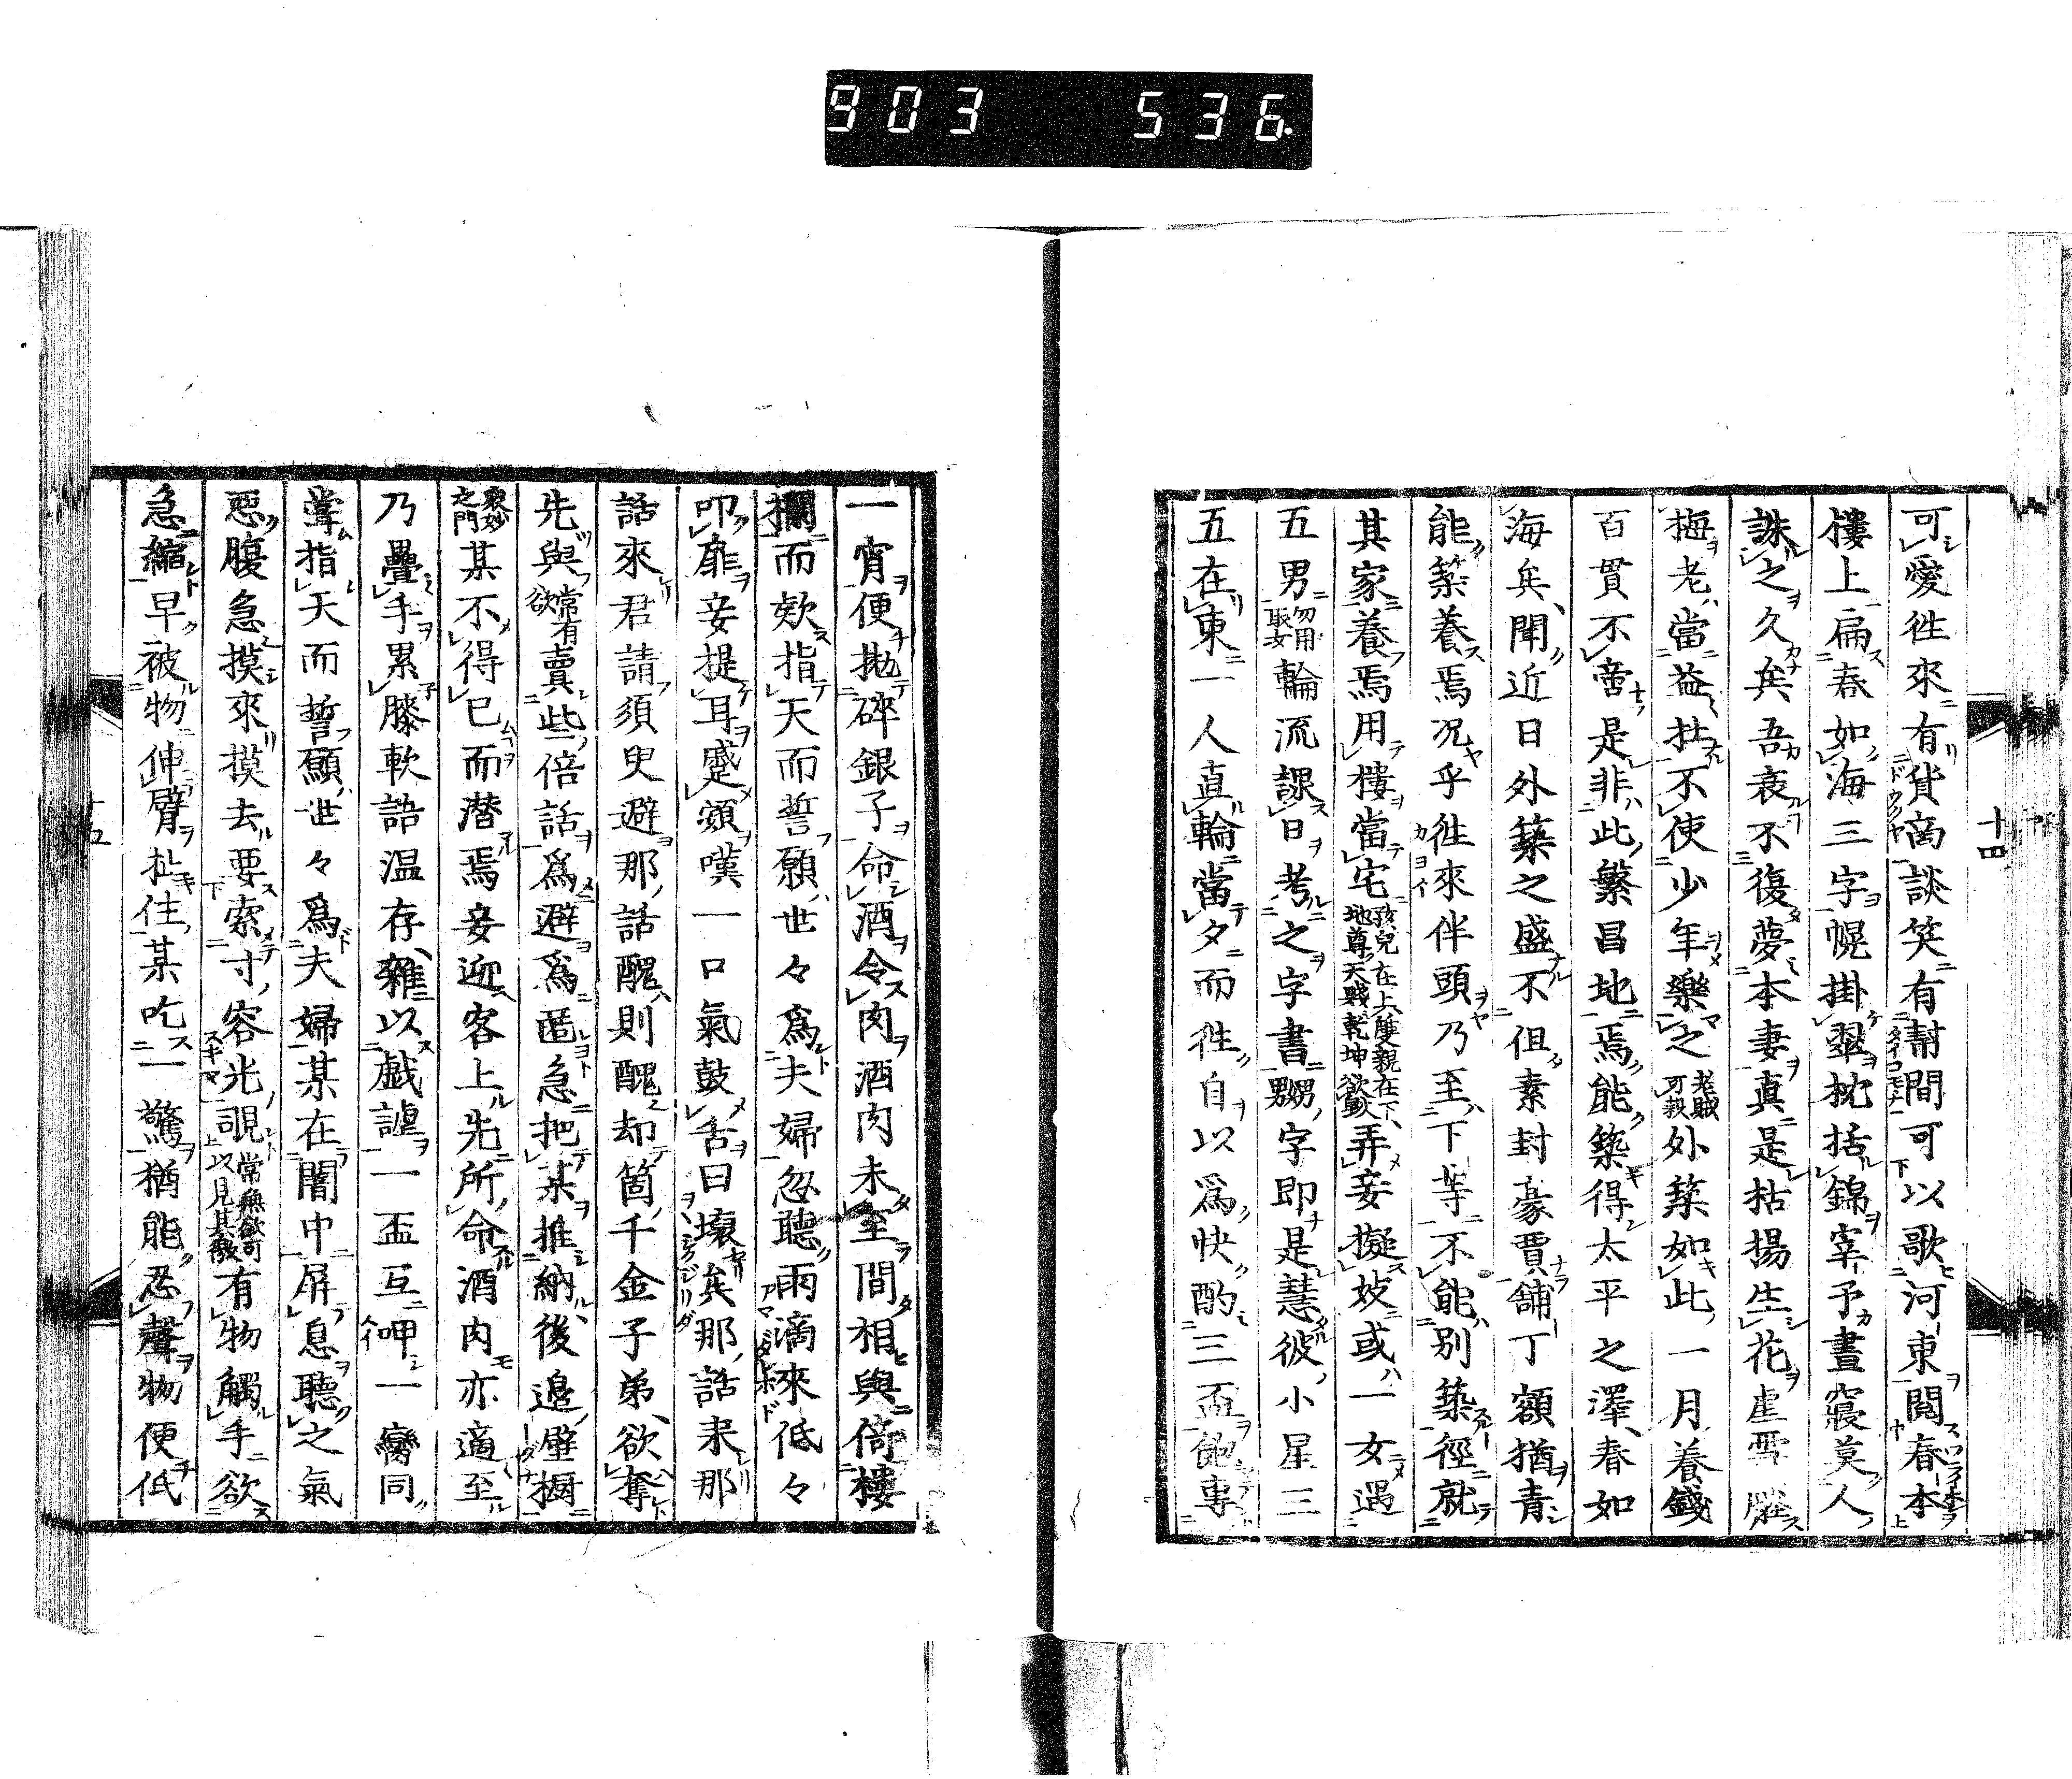 903 536
十四
可愛徃來有貨商談笑有幇間可以歌河東閲春本
樓上扁春如海三字幌掛翠枕括錦宰予晝寢莫人
誅之久矣吾衰不復夢本妻眞是枯楊生花
梅老當益壯不使少年樂之老賊可殺外築如此一月養錢
百貫不啻是非此繁昌地焉能築得太平之澤春如
海矣聞近日外築之盛不但素封豪賈舗丁額猶青
能築養焉况乎徃來伴頭乃至下等不能別築徑就
其家養焉用樓當宅孩兒在上雙親在下地尊天賤乾坤欲動弄妾擬妓或一女遇
五男勿用取女輪流課日考之字書嬲字即是慧彼小星三
五在東一人直輪當夕而徃自以爲快酌三盃飽專
一宵便拋碎銀子命酒令肉酒肉未至間相與倚樓
欄而欸指天而誓願世々爲夫婦忽聽雨滴來低々
叩扉妾提耳蹙頞嘆一口氣鼓舌曰壞矣那話来那
話來君請須臾避那話醜則醜却箇千金子弟欲奪
先與常有欲賣些倍話爲避爲匿急把某推納後邉壁橱
衆妙之門某不得已而潜焉妾迎客上先所命酒肉亦適至
乃疊手累膝軟語温存雜以戯謔一盃互呷一臠同
甞指天而誓願世々爲夫婦某在闇中屏息聽之氣
惡腹急摸來摸去要索寸容光覗常無欲可以見其徼有物觸手欲
急縮早被物伸臂扯住某吃一驚猶能忍聲物便低
十五